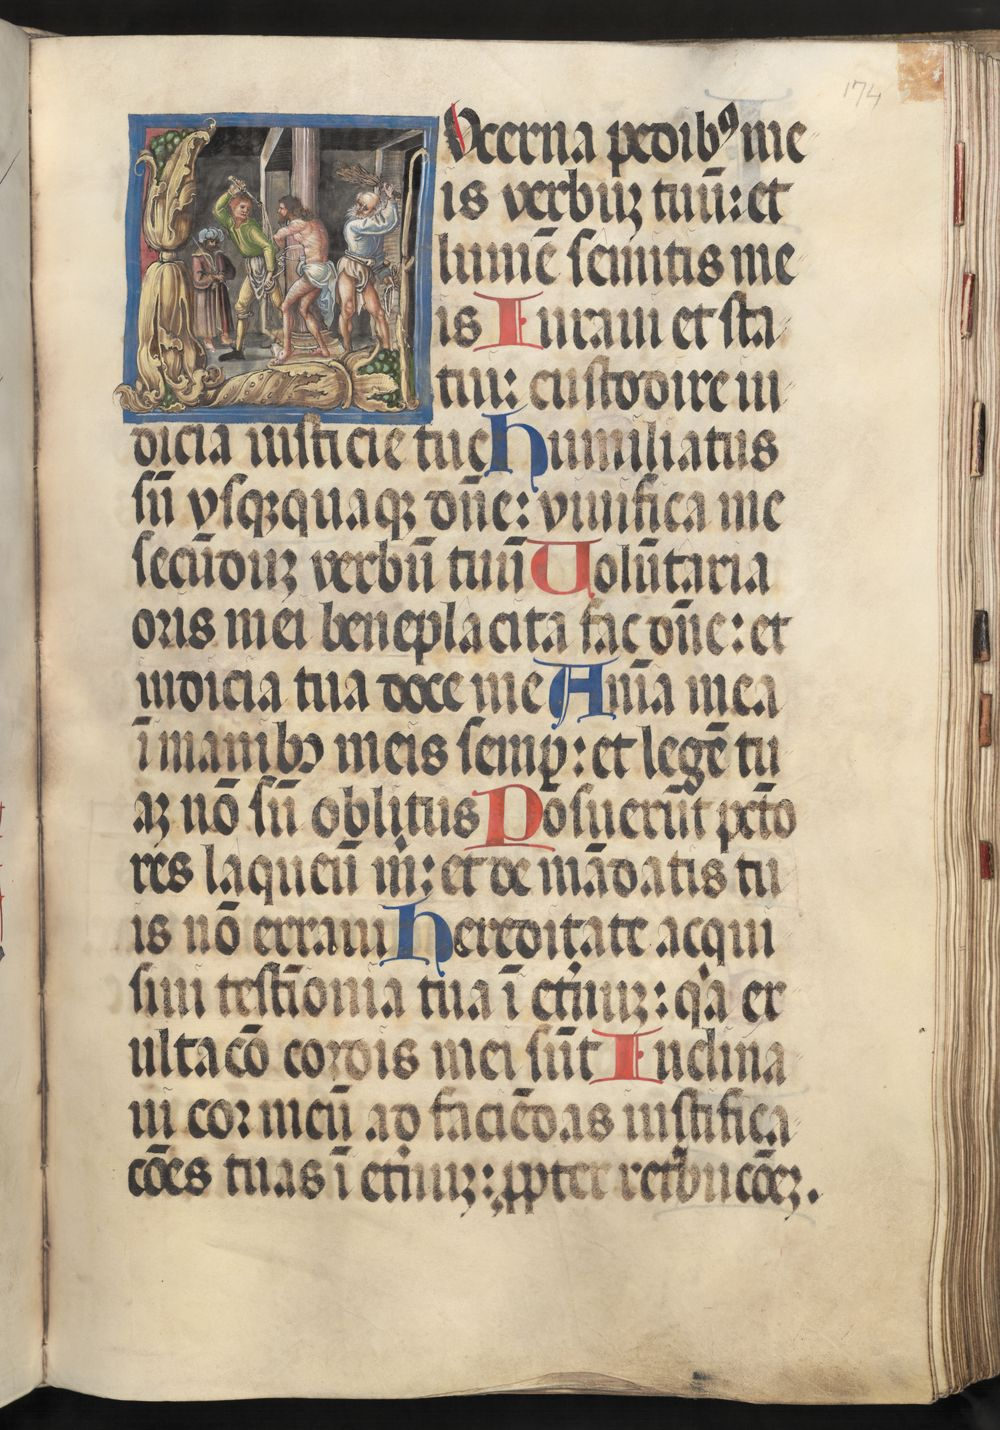 174
Lucerna pedibꝰ me
is verbuꝫ tuū: et
lumē semitis me
is Iuraui et sta
tui: custodire iu
dicia iusticie tue Humiliatus
sū vsqꝫquaqꝫ dn̄e: viuifica me
secūduꝫ verbū tuū Uolūtaria
oris mei beneplacita fac dn̄e: et
iudicia tua doce me Anīa mea
ī manibꝫ meis semꝑ: et legē tu
aꝫ nō sū oblitus Posuerūt pctō
res laqueū m̄: et de mādatis tu
is nō erraui Hereditate acqui
siui testīonia tua ī etnuꝫ: qa ex
ultacō cordis mei sūt Inclina
ui cor meū ad faciēdas iustifica
cōes tuas ī etnuꝫ: ꝓpter retbucōeꝫ.